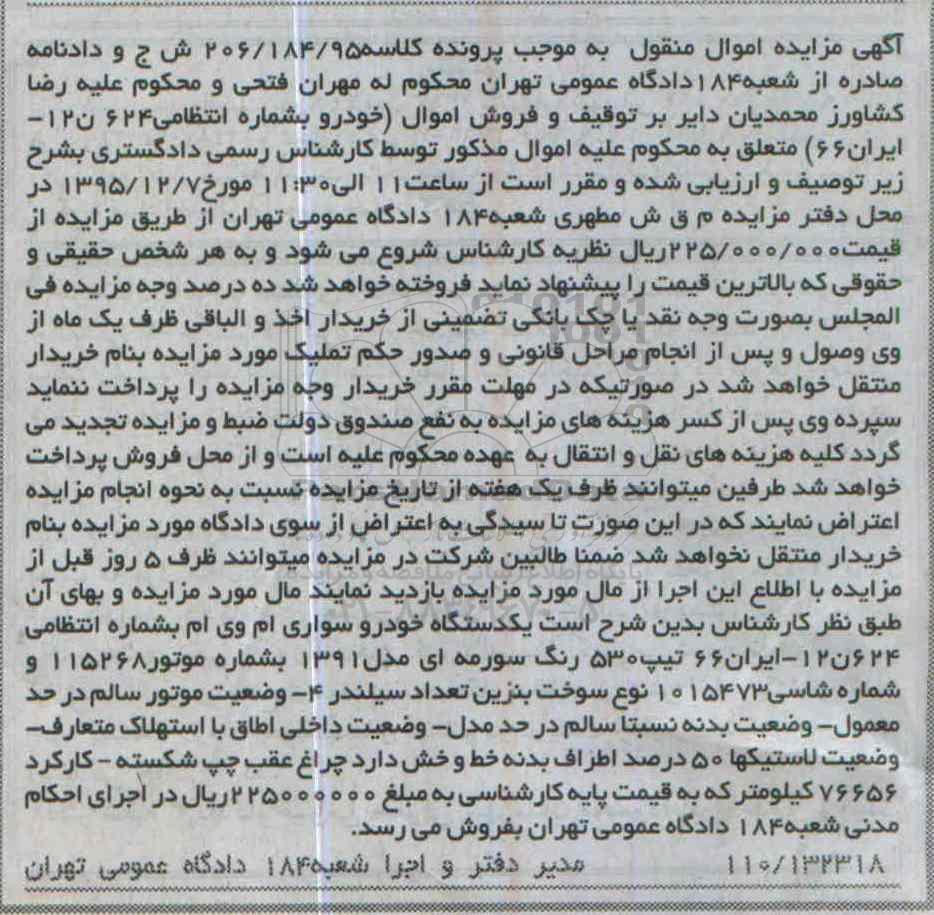 آگهی مزایده اموال منقول به موجب پرونده کلاسه۲۰۶/۱۸۴/۹۵ ش ج و دادنامه
صادره از شعبه۱۸۴دادگاه عمومی تهران محکوم له مهران فتحی و محکوم علیه رضا
کشاورز محمدیان دایر بر توقیف و فروش اموال (خودرو بشماره انتظامی۶۲۴ ن۱۲-
ایران۶۶) متعلق به محکوم علیه اموال مذکور توسط کارشناس رسمی دادگستری بشرح
زیر توصیف و ارزیابی شده و مقرر است از ساعت۱۱ الی۱۱:۳۰ مورخ۱۳۹۵/۱۲/۷ در
محل دفتر مزایده م ق ش مطهری شعبه۱۸۴ دادگاه عمومی تهران از طریق مزایده از
قیمت۲۲۵/۰۰۰/۰۰۰ریال نظریه کارشناس شروع می شود و به هر شخص حقیقی و
حقوقی که بالاترین قیمت را پیشنهاد نماید فروخته خواهد شد ده درصد وجه مزایده فی
المجلس بصورت وجه نقد یا چک بانکی تضمینی از خریدار اخذ و الباقی ظرف یک ماه از
وی وصول و پس از انجام مراحل قانونی و صدور حکم تملیک مورد مزایده بنام خریدار
منتقل خواهد شد در صورتیکه در مهلت مقرر خریدار وجه مزایده را پرداخت ننماید
سپرده وی پس از کسر هزینه های مزایده به نفع صندوق دولت ضبط و مزایده تجدید می
گردد کلیه هزینه های نقل و انتقال به عهده محکوم علیه است و از محل فروش پرداخت
خواهد شد طرفین میتوانند ظرف یک هفته از تاریخ مزایده نسبت به نحوه انجام مزایده
اعتراض نمایند که در این صورت تا سیدگی به اعتراض از سوی دادگاه مورد مزایده بنام
خریدار منتقل نخواهد شد ضمنا طالبین شرکت در مزایده میتوانند ظرف ۵ روز قبل از
مزایده با اطلاع این اجرا از مال مورد مزایده بازدید نمایند مال مورد مزایده و بهای آن
طبق نظر کارشناس بدین شرح است یکدستگاه خودرو سواری ام وی ام بشماره انتظامی
۶۲۴ن۱۲-ایران۶۶ تیپ۵۳۰ رنگ سورمه ای مدل۱۳۹۱ بشماره موتور۱۱۵۲۶۸ و
شماره شاسی۱۰۱۵۴۷۳ نوع سوخت بنزین تعداد سیلندر ۴- وضعیت موتور سالم در حد
معمول- وضعیت بدنه نسبتا سالم در حد مدل- وضعیت داخلی اطاق با استهلاک متعارف-
وضعیت لاستیکها ۵۰ درصد اطراف بدنه خط و خش دارد چراغ عقب چپ شکسته - کارکرد
۷۶۶۵۶ کیلومتر که به قیمت پایه کارشناسی به مبلغ ۲۲۵۰۰۰۰۰۰ریال در اجرای احکام
مدنی شعبه۱۸۴ دادگاه عمومی تهران بفروش می رسد.
۱۱۰/۱۳۲۳۱۸ مدیر دفتر و اجرا شعبه۱۸۴ دادگاه عمومی تهران